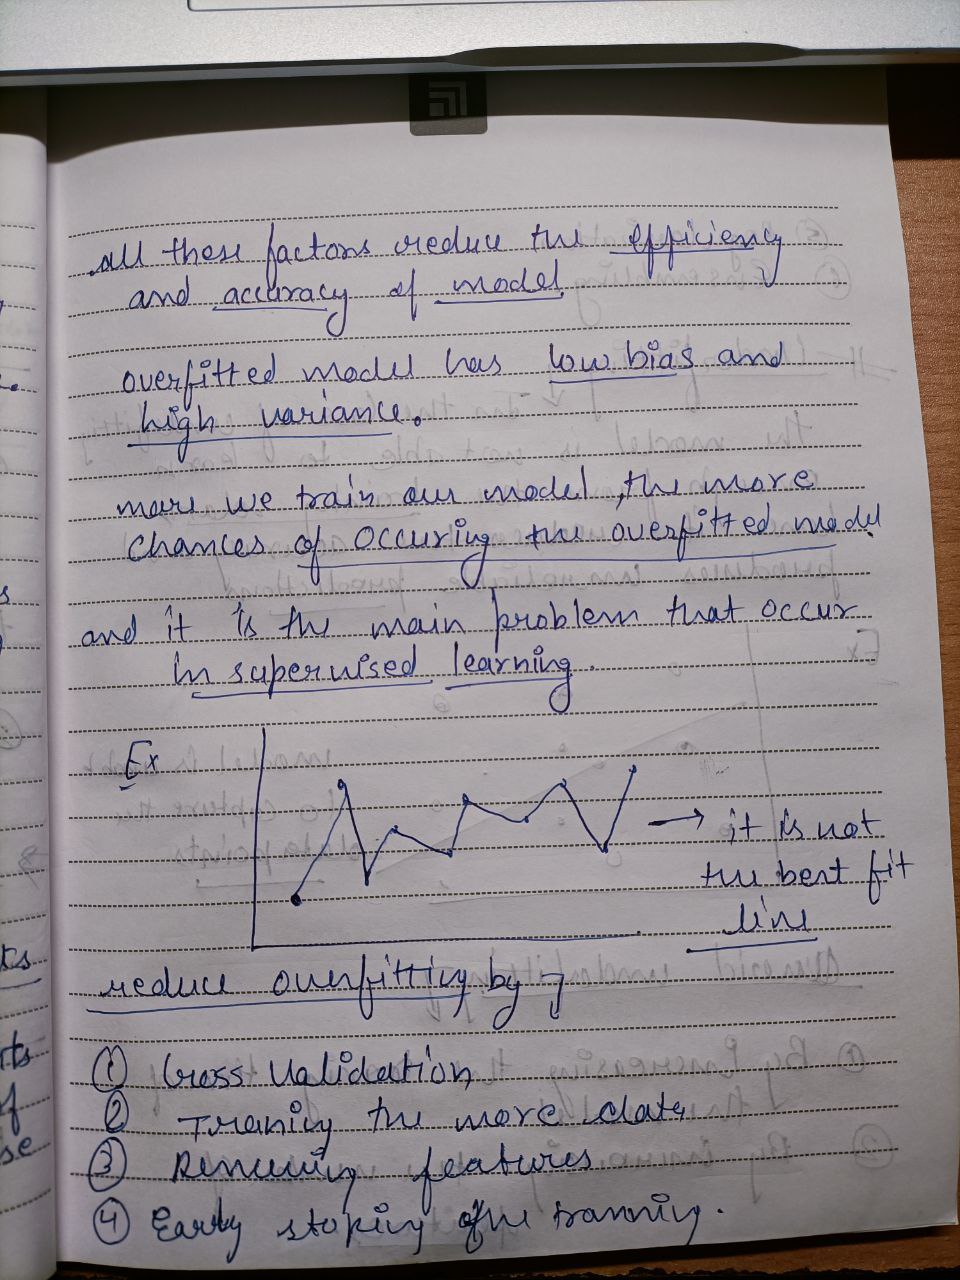 all these factors reduce the efficiency
and accuracy of model
overfitted model has low bias and
high variance.
more we train our model, the more
chances of occuring the overfitted model.
and it is the main problem that occur
in supervised learning.
Ex
→ it is not
the best fit
line
reduce overfitting by
① Cross Validation
② Traning the more data
③ Removing features
④ Early stoping of the tranning.